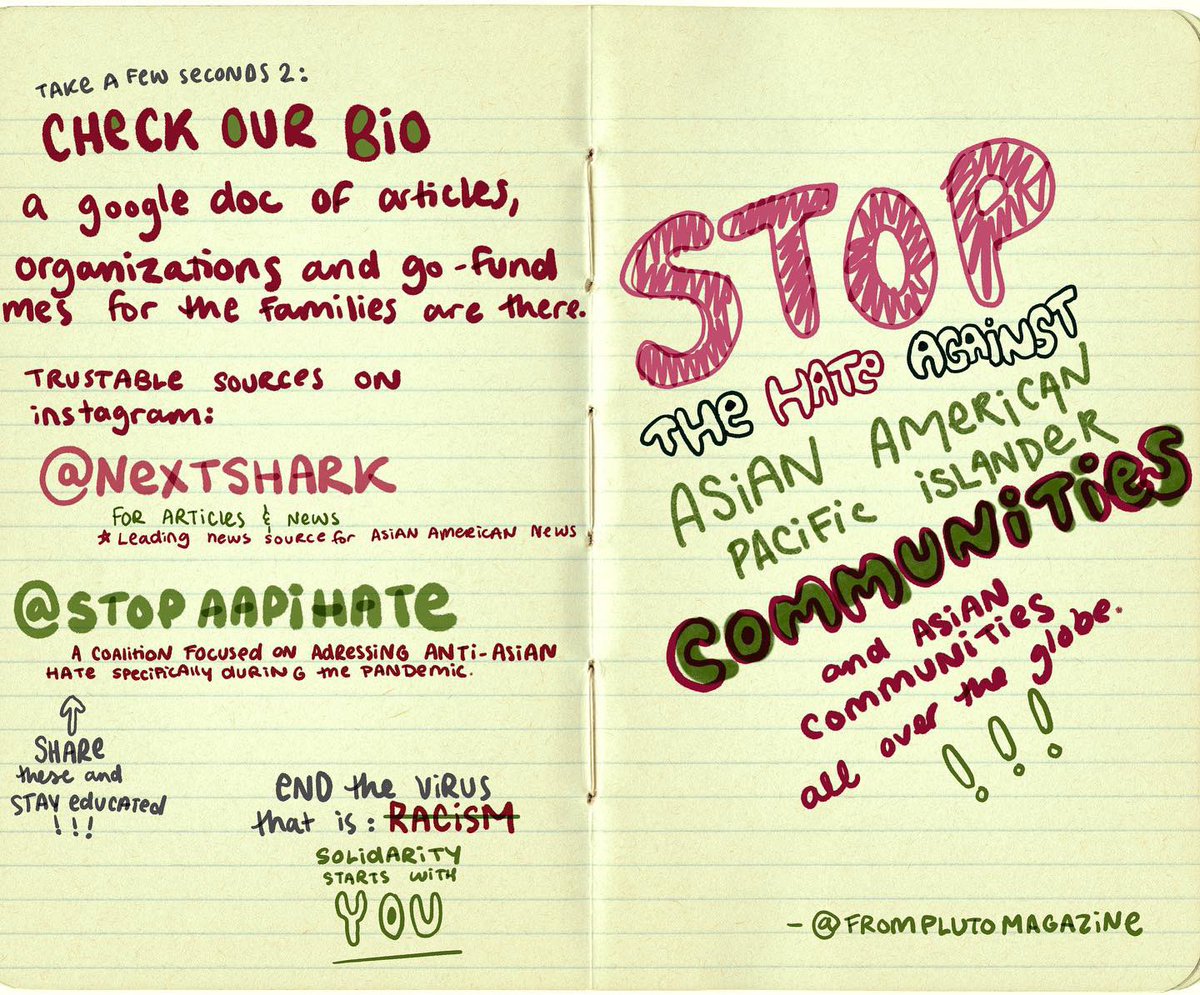 TAKE A FEW SECONDS 2:
CHECK OUR BIO
a google doc of articles,
organizations and go-fund
me's for the families are there.
TRUSTABLE SOURCES ON
instagram:
@NEXTSHARK
FOR ARTICLES & NEWS
* Leading news source for ASIAN AMERICAN NEWS
@STOPAAPIHATE
A COALITION FOCUSED ON ADRESSING ANTI-ASIAN
HATE SPECIFICALLY DURING the PANDEMIC.
SHARE
these and
STAY educated
!!!
END the VIRUS
that is: RACISM
SOLIDARITY
STARTS WITH
YOU
STOP
THE HATE AGAINST
ASIAN AMERICAN
PACIFIC ISLANDER
COMMUNITIES
and ASIAN
COMMUNITIES
all over the globe.
!!!
- @FROMPLUTOMAGAZINE